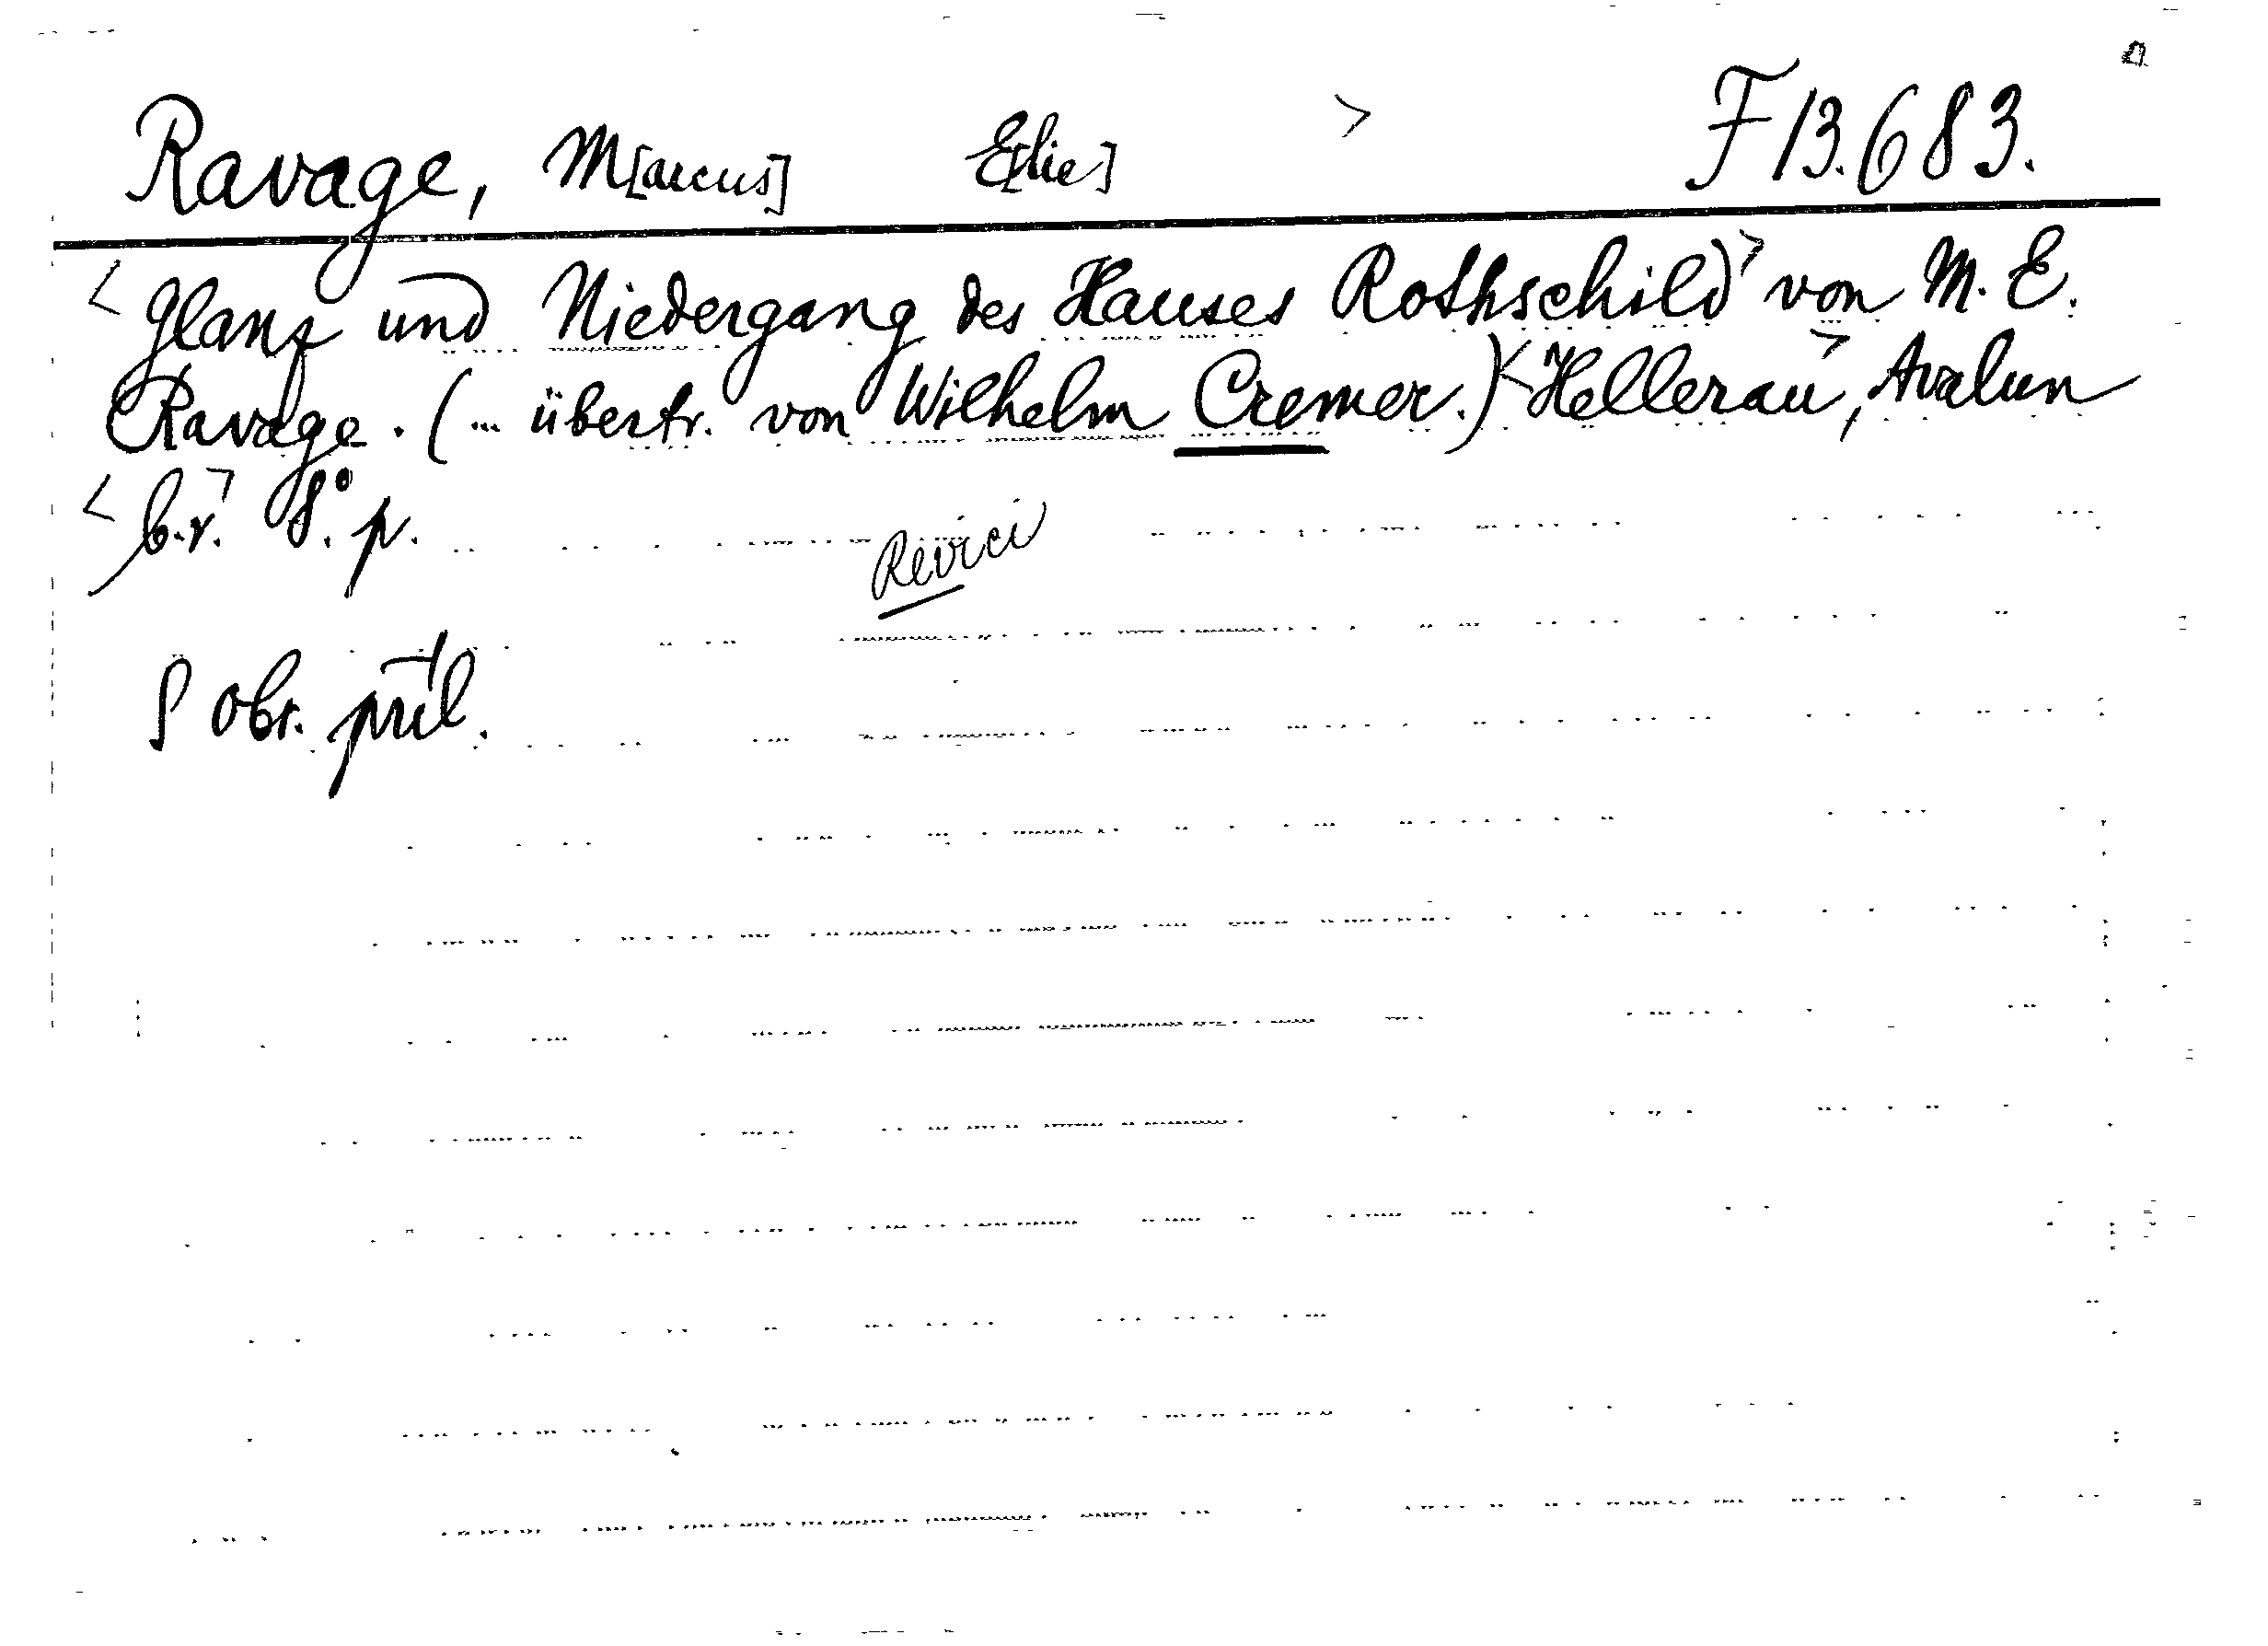 Ravage, M[arcus] E[lie] > F 13.683.
<Glanz und Niedergang des Hauses Rothschild> von M. E.
Ravage. (... übertr. von Wilhelm Cremer.) <Hellerau>, Avalun
<b.r.> 8° p.
Revici
S obr. příl.